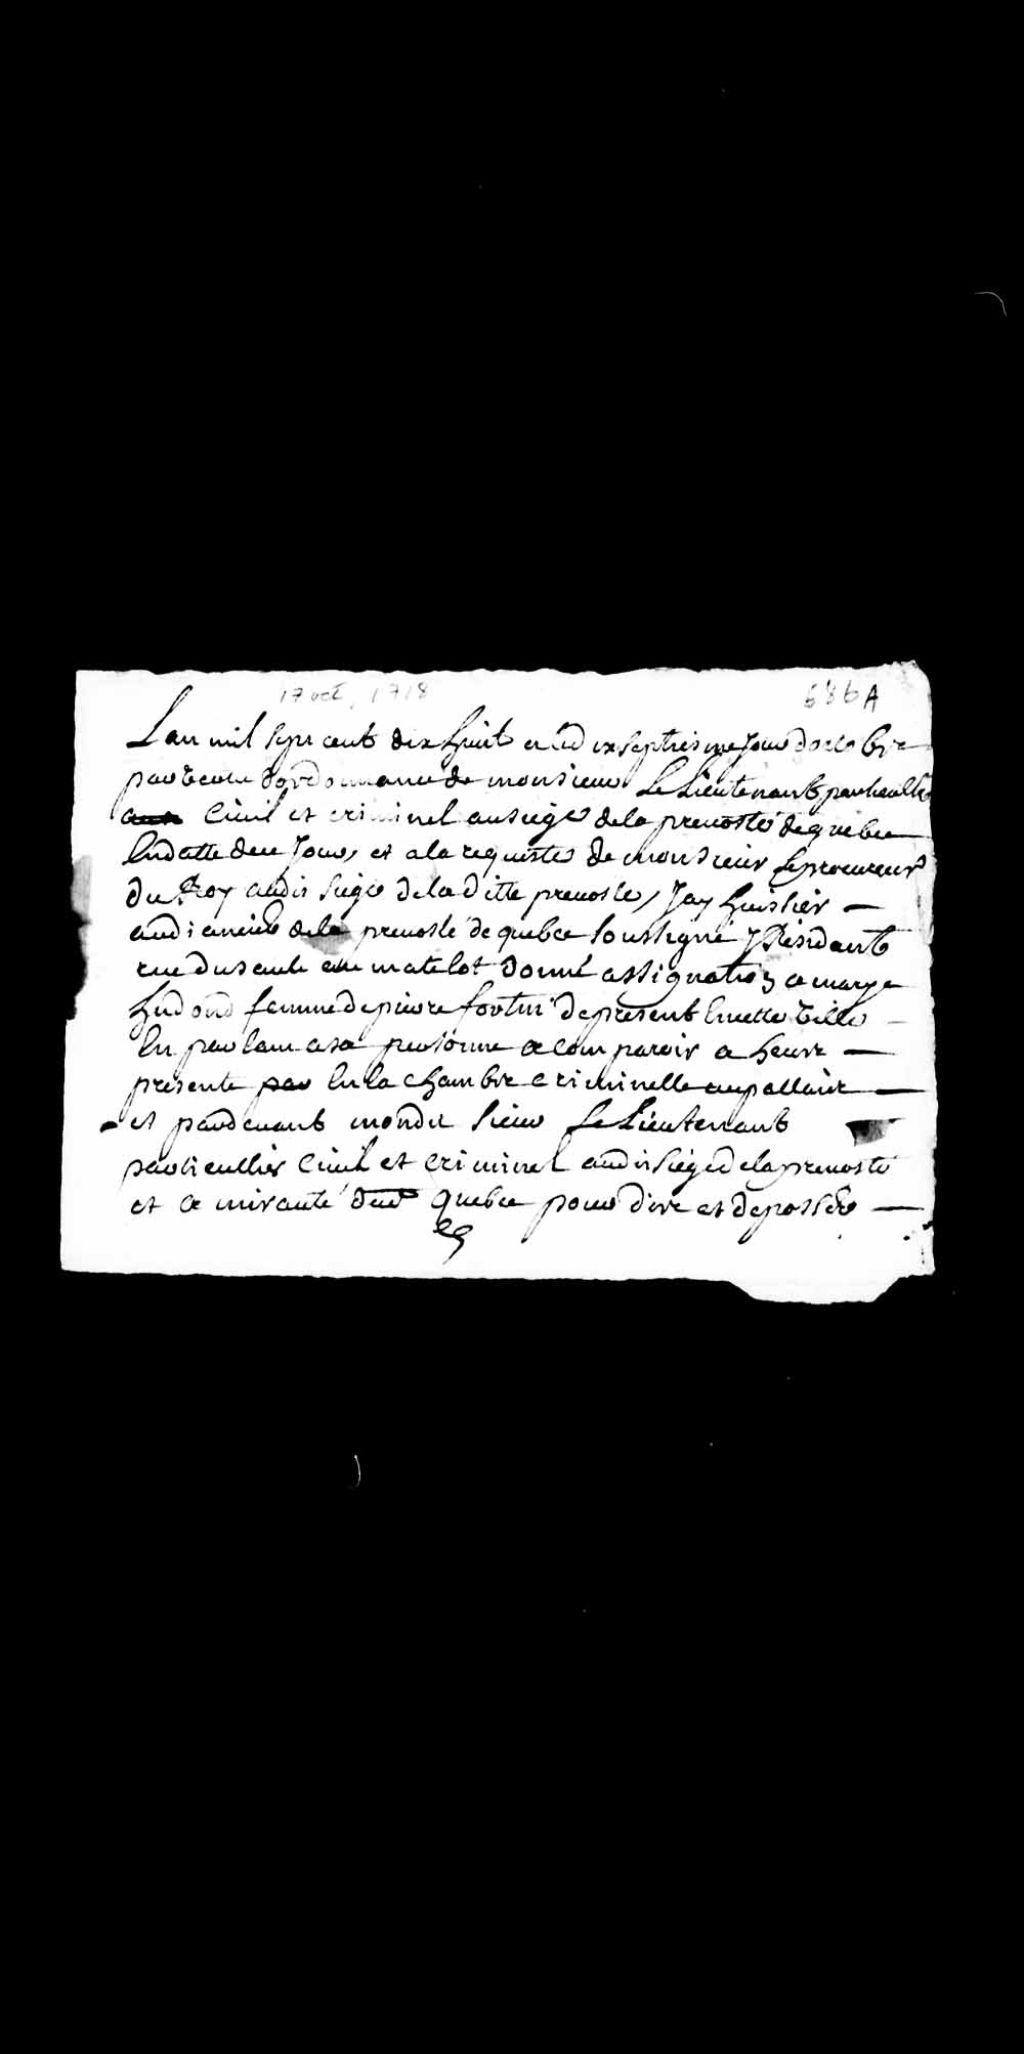 17 oct, 1718 686A
Lan mil sept cent dix huit et le dix septiesme Jour doctobre
par vertu dordonnance de monsieur Le Lieutenant particullier
Civil et criminel au siege de la prevosté de quebec
En datte de ce Jour, et a la requeste de monsieur Le procureur
du Roy audit siege de la ditte prevosté, Jay huissier
audiancier de la prevosté de quebec soussigné Residant
rue du sault au matelot donné assignation a marye
hudond femme de pierre fortin de present En cette ville
En parlant a sa personne a comparoir a heure
presente par En la chambre criminelle au pallais
et pardevant mondit sieur Le Lieutenant
particullier Civil et criminel audit siege de la prevosté
et amirauté de Quebec pour dire et deposser